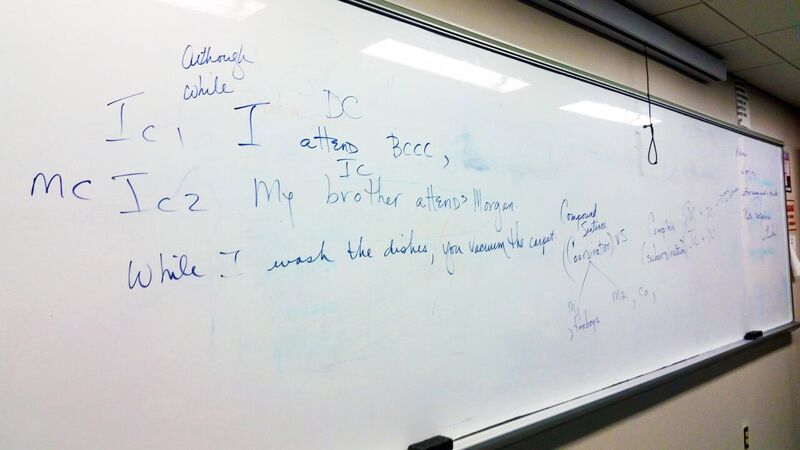 Although
while
DC
IC1 I attend BCCC,
IC
MC IC2 My brother attends Morgan.
While I wash the dishes, you vacuum the carpet.
Compound
Sentence
(Coordination) VS
M2 ; ca,
, fanboys
Complex DC + IC
(subordination) IC + DC